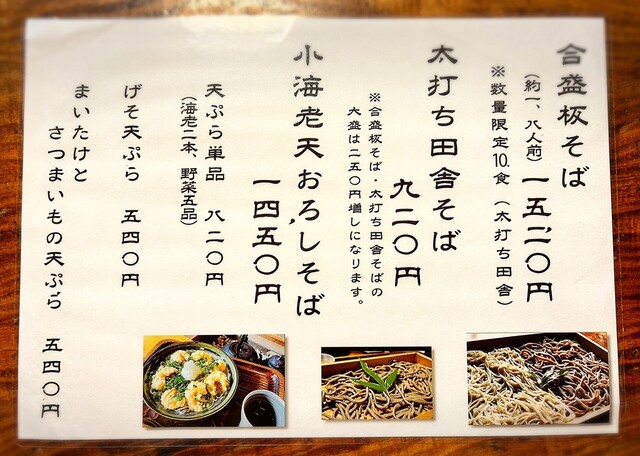 合盛板そば
（約一、八人前）一五二〇円
※数量限定10.食（太打ち田舎）
太打ち田舎そば
九二〇円
※合盛板そば・太打ち田舎そばの
大盛は二五〇円増しになります。
小海老天おろしそば
一四五〇円
天ぷら単品 八二〇円
（海老二本、野菜五品）
げそ天ぷら 五四〇円
まいたけと
さつまいもの天ぷら 五四〇円